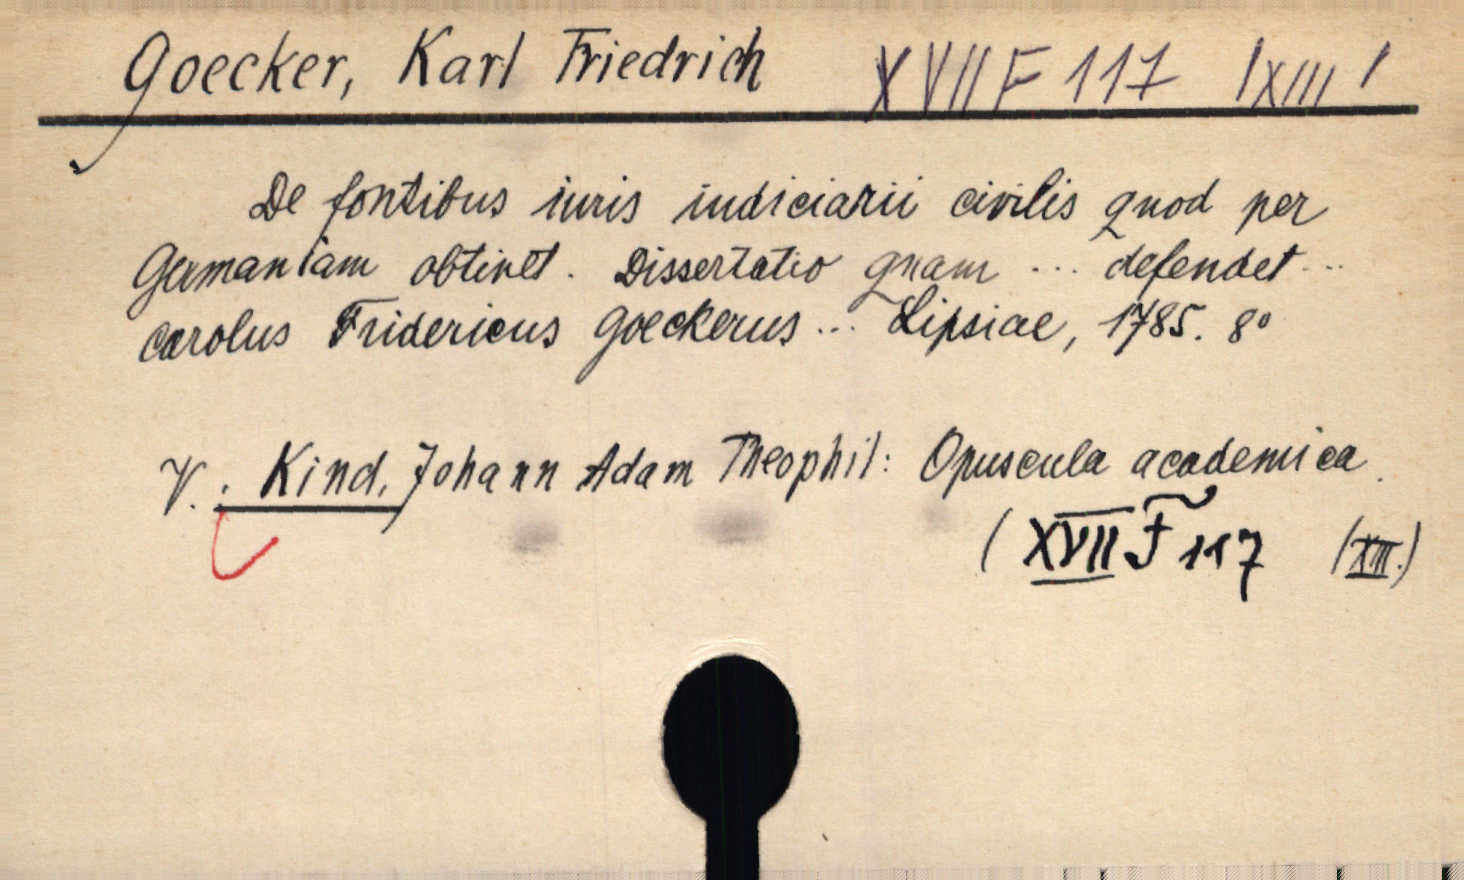 Goecker, Karl Friedrich XVII F 117 /XIII/
De fontibus iuris iudiciarii civilis quod per
Germaniam obtinet. Dissertatio quam ... defendet ...
Carolus Fridericus Goeckerus ... Lipsiae, 1785. 8°
V.: Kind, Johann Adam Theophil: Opuscula academica.
(XVII F 117 (XIII.)